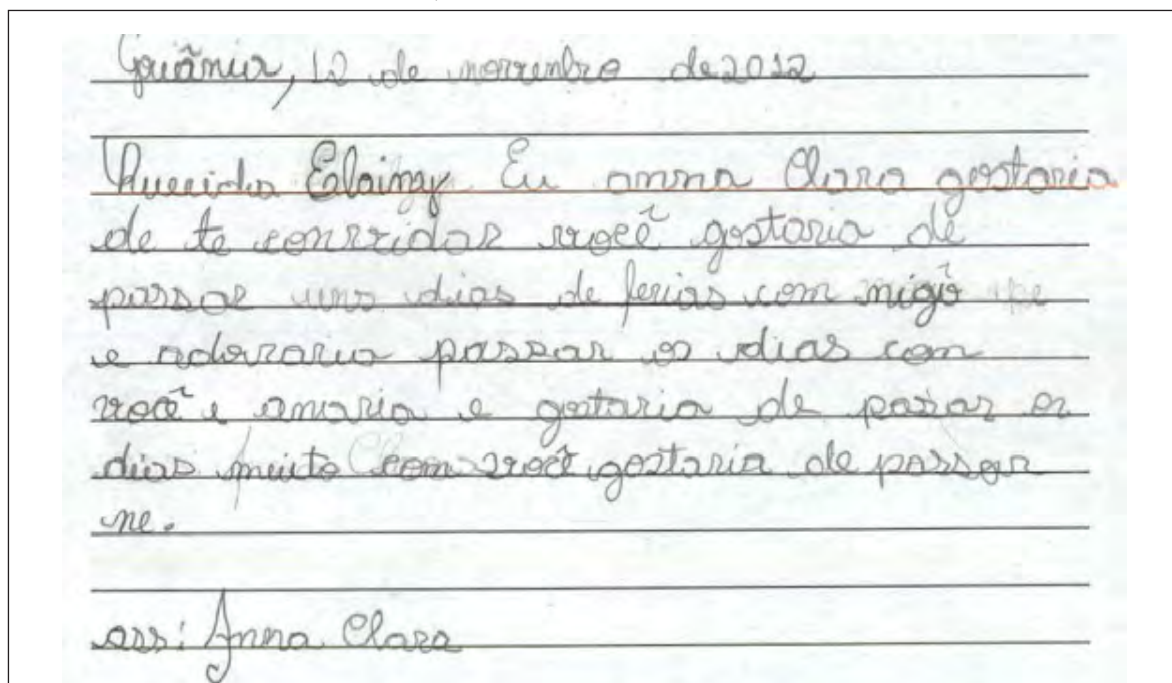 Goiânia, 12 de novembro de 2012
Querida Elainy Eu anna Clara gostaria
de te convidar você gostaria de
passar uns dias de ferias com migo
e adoraria passar os dias com
você e amaria e gostaria de pasar os
dias muito com você gostaria de passar
ne.
ass: Anna Clara